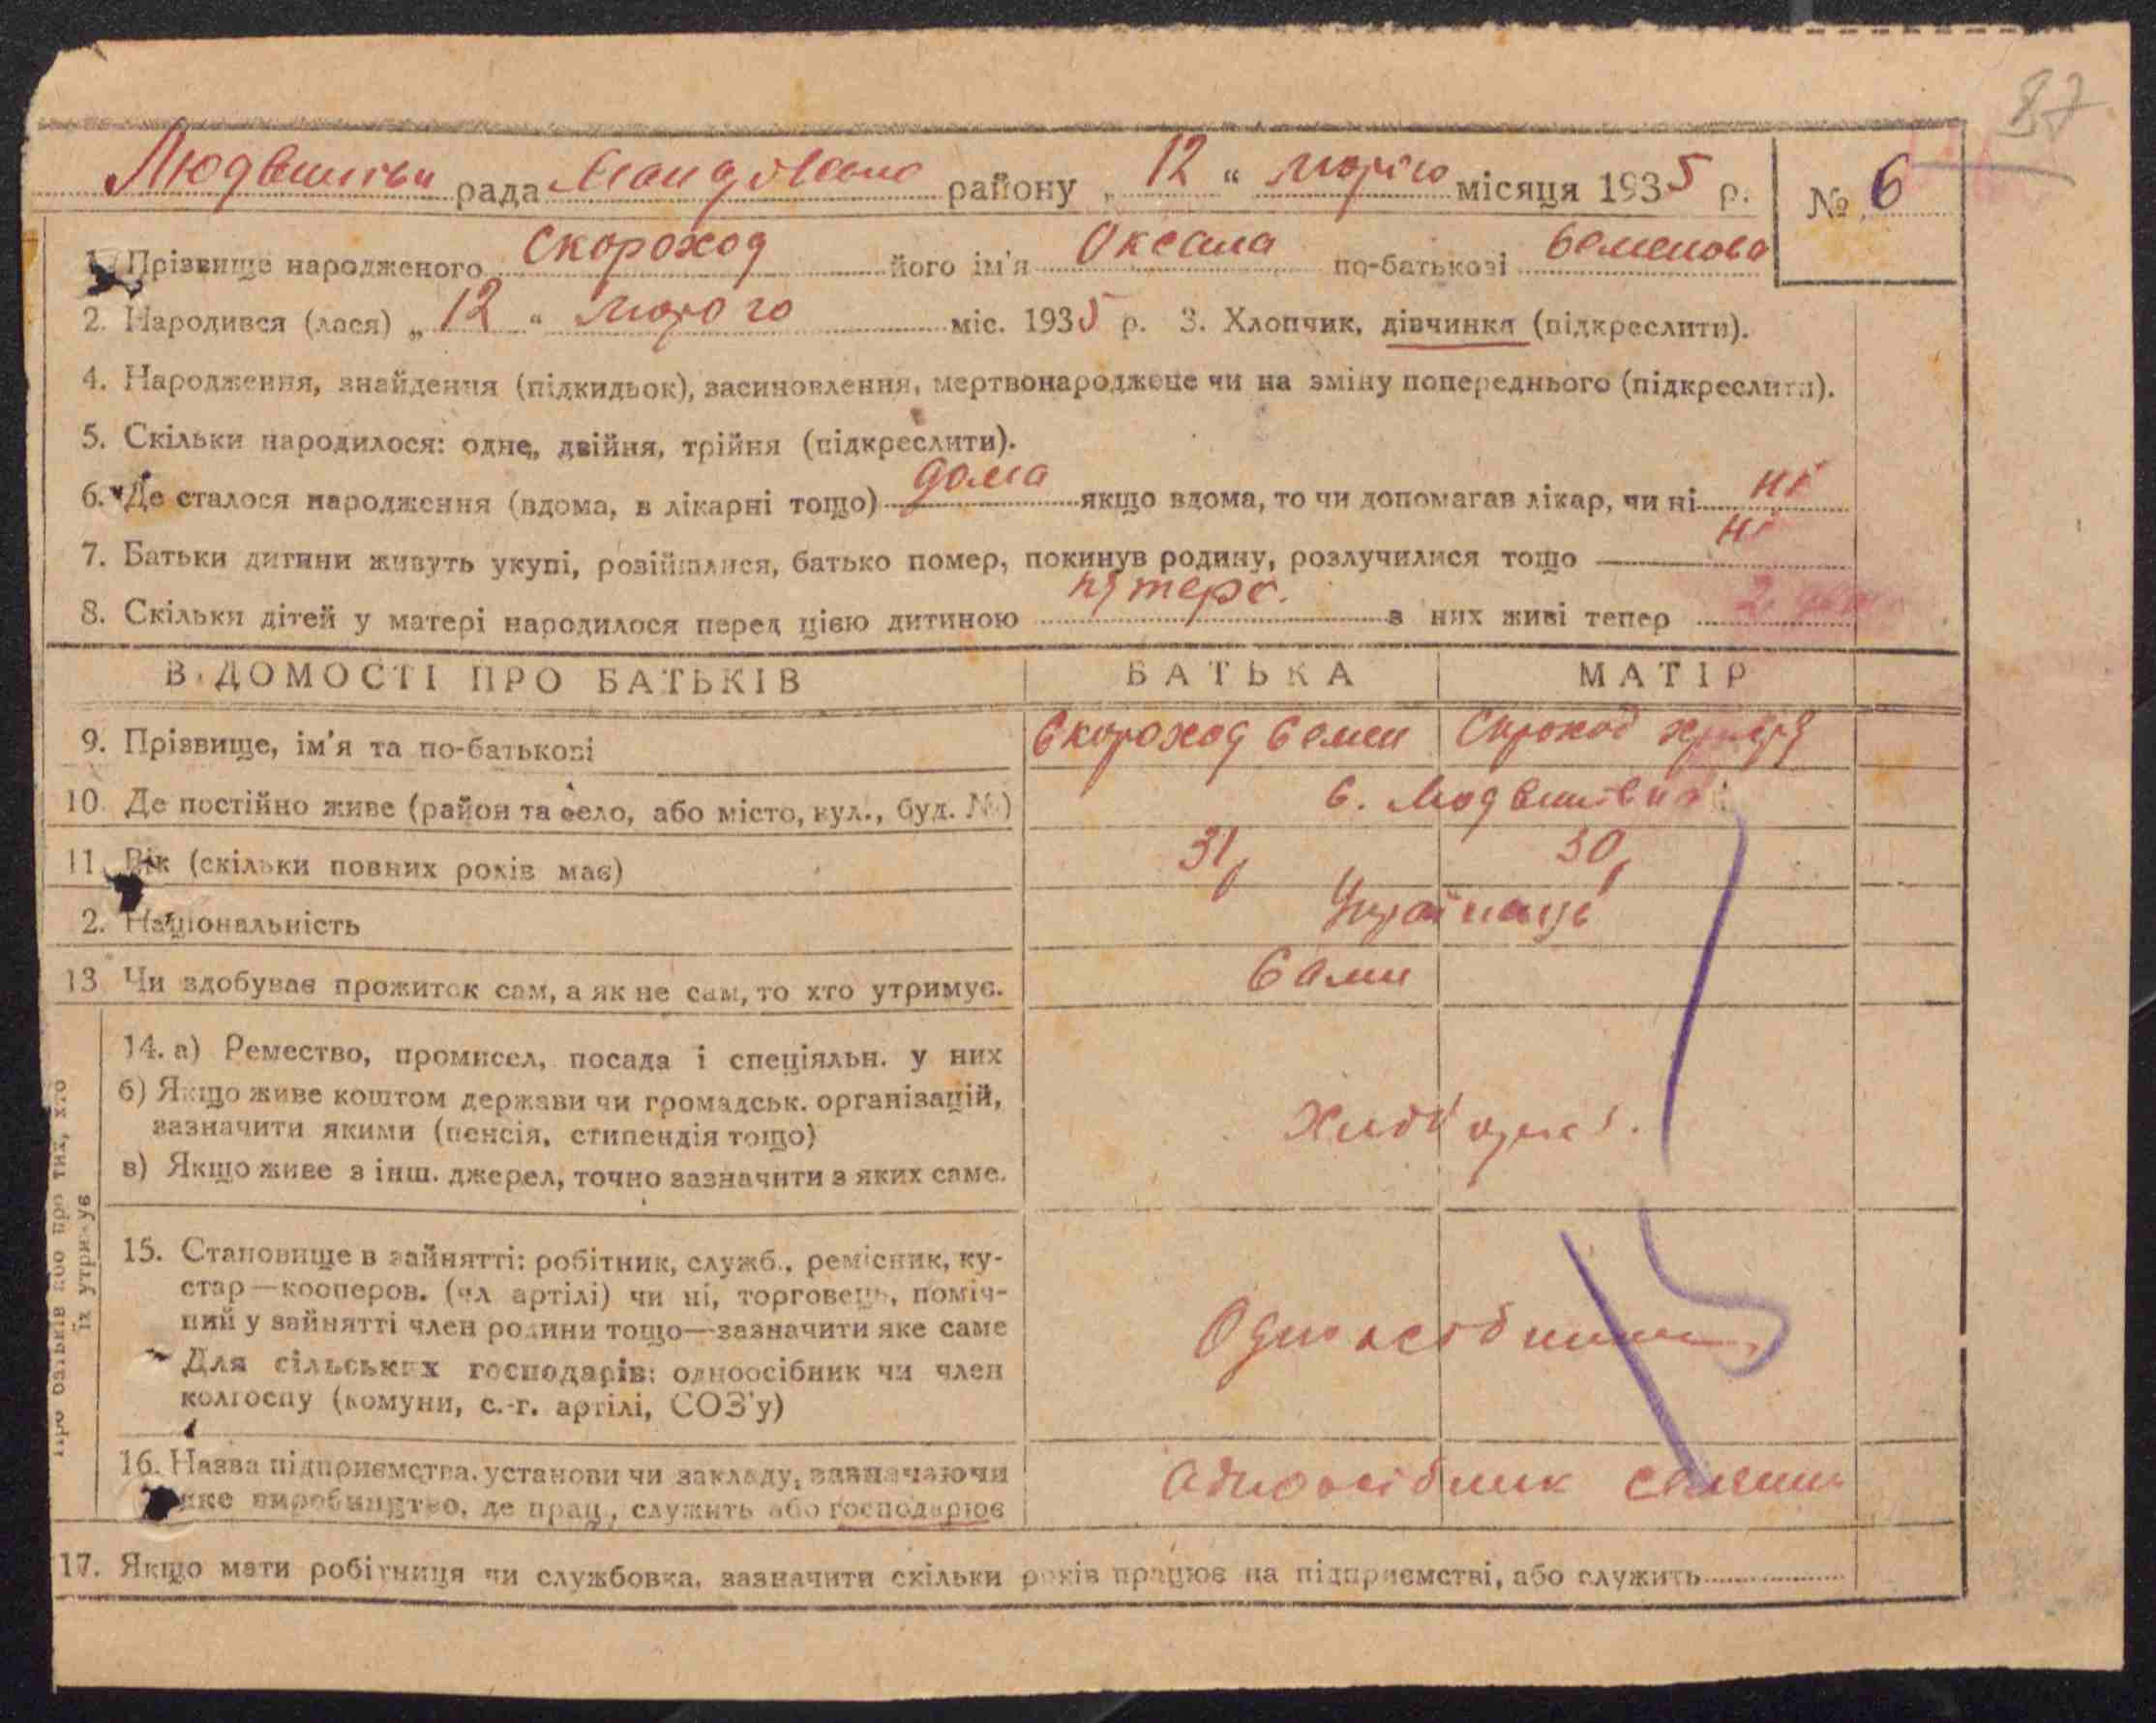 87
рада района району „ 12 “ лютого місяця 1935 р. № 6
1. Прізвище народженого Скороход його ім'я Оксана по-батькові Семенова
2. Народився (лася) „ 12 “ лютого міс. 1935 р. 3. Хлопчик, дівчинка (підкреслити).
4. Народження, знайдення (підкидьок), засиновлення, мертвонароджене чи на зміну попереднього (підкреслити).
5. Скільки народилося: одне, двійня, трійня (підкреслити).
6. Де сталося народження (вдома, в лікарні тощо) дома якщо вдома, то чи допомагав лікар, чи ні ні
7. Батьки дитини живуть укупі, розійшлися, батько помер, покинув родину, розлучилися тощо ні
8. Скільки дітей у матері народилося перед цією дитиною з них живі тепер 2
ВІДОМОСТІ ПРО БАТЬКІВ БАТЬКА МАТІР
9. Прізвище, ім'я та по-батькові Скороход Семен Скроход
10. Де постійно живе (район та село, або місто, вул., буд. №) с.
11. Вік (скільки повних років має) 31 30
2. Національність Українці
13 Чи здобуває прожиток сам, а як не сам, то хто утримує. Сами
Про батьків або про тих, хто
їх утримує
14. а) Ремество, промисел, посада і спеціяльн. у них
б) Якщо живе коштом держави чи громадськ. організацій,
зазначити якими (пенсія, стипендія тощо)
в) Якщо живе з інш. джерел, точно зазначити з яких саме.
15. Становище в зайнятті: робітник, служб., ремісник, ку-
стар—кооперов. (чл артілі) чи ні, торговець, поміч-
ний у зайнятті член родини тощо—зазначити яке саме
Для сільських господарів: одноосібник чи член
колгоспу (комуни, с.-г. артілі, СОЗ'у)
16. Назва підприємства, установи чи закладу, зазначаючи одноосібник
яке виробництво, де прац., служить або господарює
17. Якщо мати робітниця чи службовка, зазначити скільки років працює на підприємстві, або служить